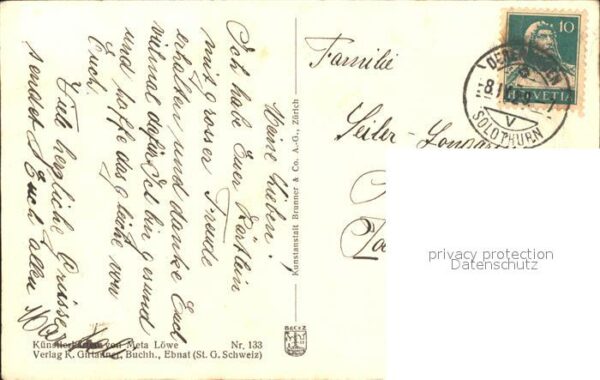 Meine Lieben!
Ich habe Euer Kärtlein
mit grosser Freude
erhalten und danke Euch
vielmal dafür. Ich bin gesund
und hoffe das gleiche von
Euch.
Viele herzliche Grüsse
sendet Euch allen
Familie
Seiler-
10
HELVETIA
SOLOTHURN
Kunstanstalt Brunner & Co. A.-G., Zürich
privacy protection
Datenschutz
Künstlerkarten von Meta Löwe Nr. 133
Verlag K. Girtanner, Buchh., Ebnat (St. G. Schweiz)